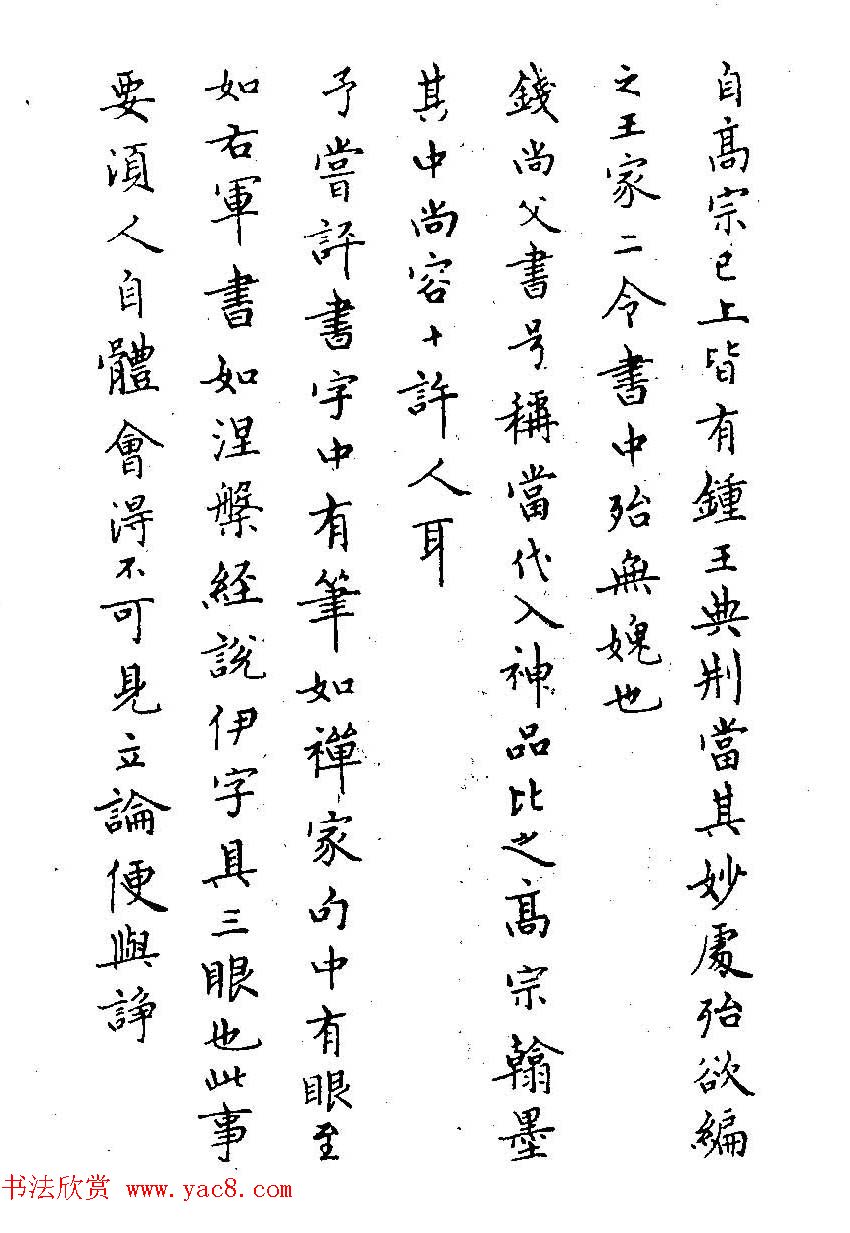 自高宗已上皆有鍾王典刑當其妙處殆欲編
之王家二令書中殆無媿也
錢尚父書号稱當代入神品比之高宗翰墨
其中尚容十許人耳
予嘗評書字中有筆如禪家句中有眼至
如右軍書如涅槃經說伊字具三眼也此事
要須人自體會得不可見立論便與諍
书法欣赏 www.yac8.com